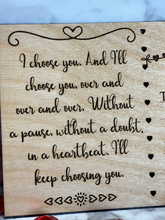 I choose you. And I'll
choose you, over and
over and over. Without
a pause, without a doubt,
in a heartbeat. I'll
keep choosing you.